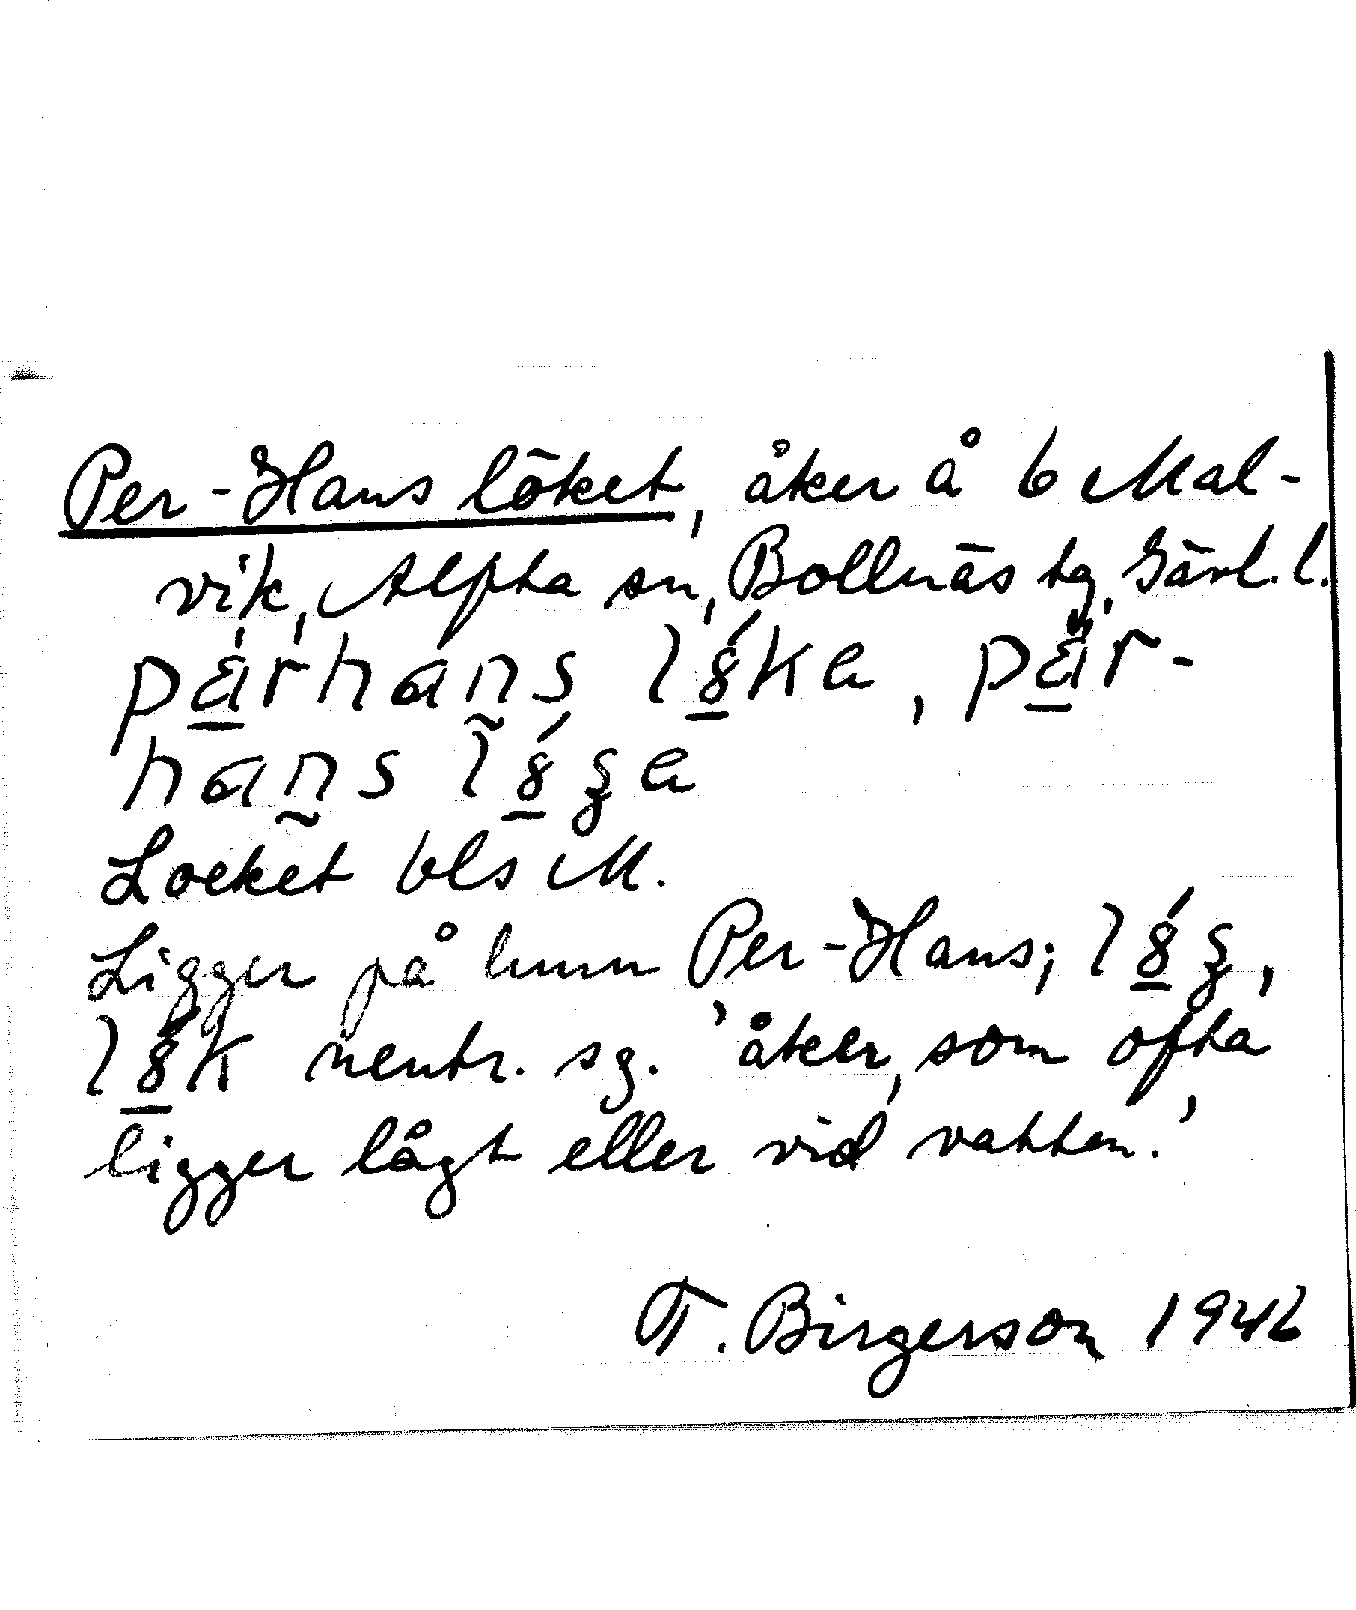 Per-Hans löket, åker å 6 Mal-
vik, Alfta sn, Bollnäs tg, Gävl. l.
Locket bls M.
Ligger på hmn Per-Hans;
neutr. sg. 'åker, som ofta
ligger lågt eller vid vatten.'
T. Birgerson 1946